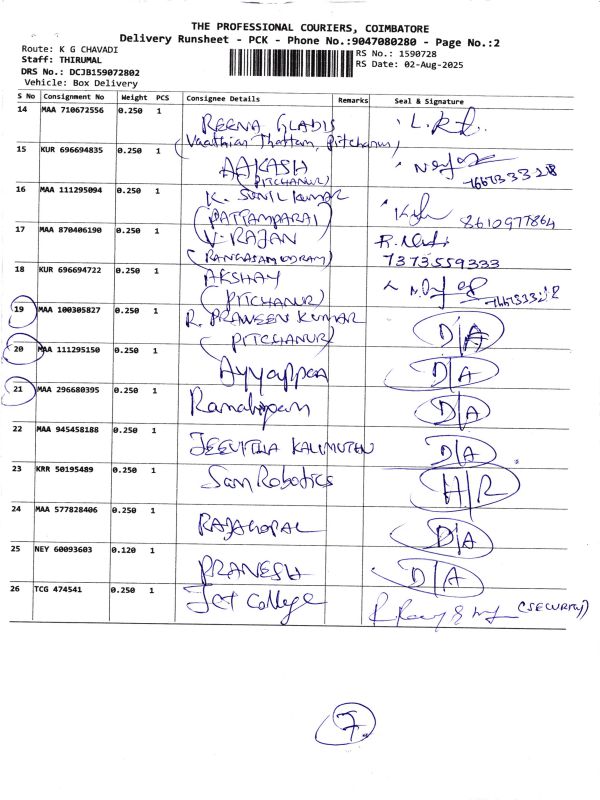 THE PROFESSIONAL COURIERS, COIMBATORE
Delivery Runsheet - PCK - Phone No.:9047080280 - Page No.:2
Route: K G CHAVADI
RS No.: 1590728
Staff: THIRUMAL
RS Date: 02-Aug-2025
DRS No.: DCJB159072802
Vehicle: Box Delivery
S No Consignment No Weight PCS Consignee Details Remarks Seal & Signature
14 MAA 710672556 0.250 1 REENA GLADIS
(Vaathiar Thottam, Pitchanur)
15 KUR 696694835 0.250 1 AAKASH
(PITCHANUR)
16 MAA 111295094 0.250 1 K. SUNIL KUMAR 8610977864
(PATTAMPARAI)
17 MAA 870406190 0.250 1 V. RAJAN
(RANGASAMUDRAM) 7373559333
18 KUR 696694722 0.250 1 AKSHAY
(PITCHANUR)
19 MAA 100305827 0.250 1 R. PRAVEEN KUMAR D/A
(PITCHANUR)
20 MAA 111295150 0.250 1 Ayyappan D/A
21 MAA 296680395 0.250 1 D/A
22 MAA 945458188 0.250 1 D/A
23 KRR 50195489 0.250 1 Sam Robotics H/R
24 MAA 577828406 0.250 1 RAJAGOPAL D/A
25 NEY 60093603 0.120 1 PRANESH D/A
26 TCG 474541 0.250 1 Jct College (SECURITY)
7